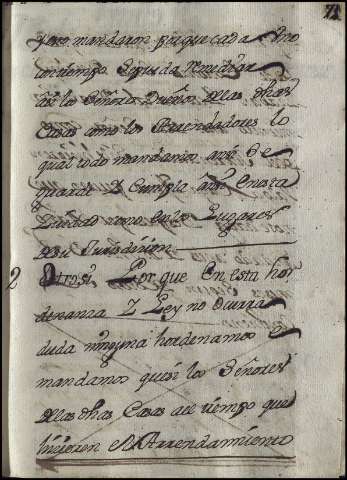 71
pero mandaron porque cada uno
en tiempo se pueda remediar
assi los Señores Dueños de las dhas
Casas como los Arrendadores lo
qual todo mandamos que se
guarde Y Cumpla assi En esta
Ciudad como en los Lugares
de su Jurisdiccion
2 Otrosi Por que En esta hor
denanza Y Ley no Ocurra
duda ninguna hordenamos Y
mandamos que si los Señores
de las dhas Casas al tiempo que
hizieren El Arrendamiento